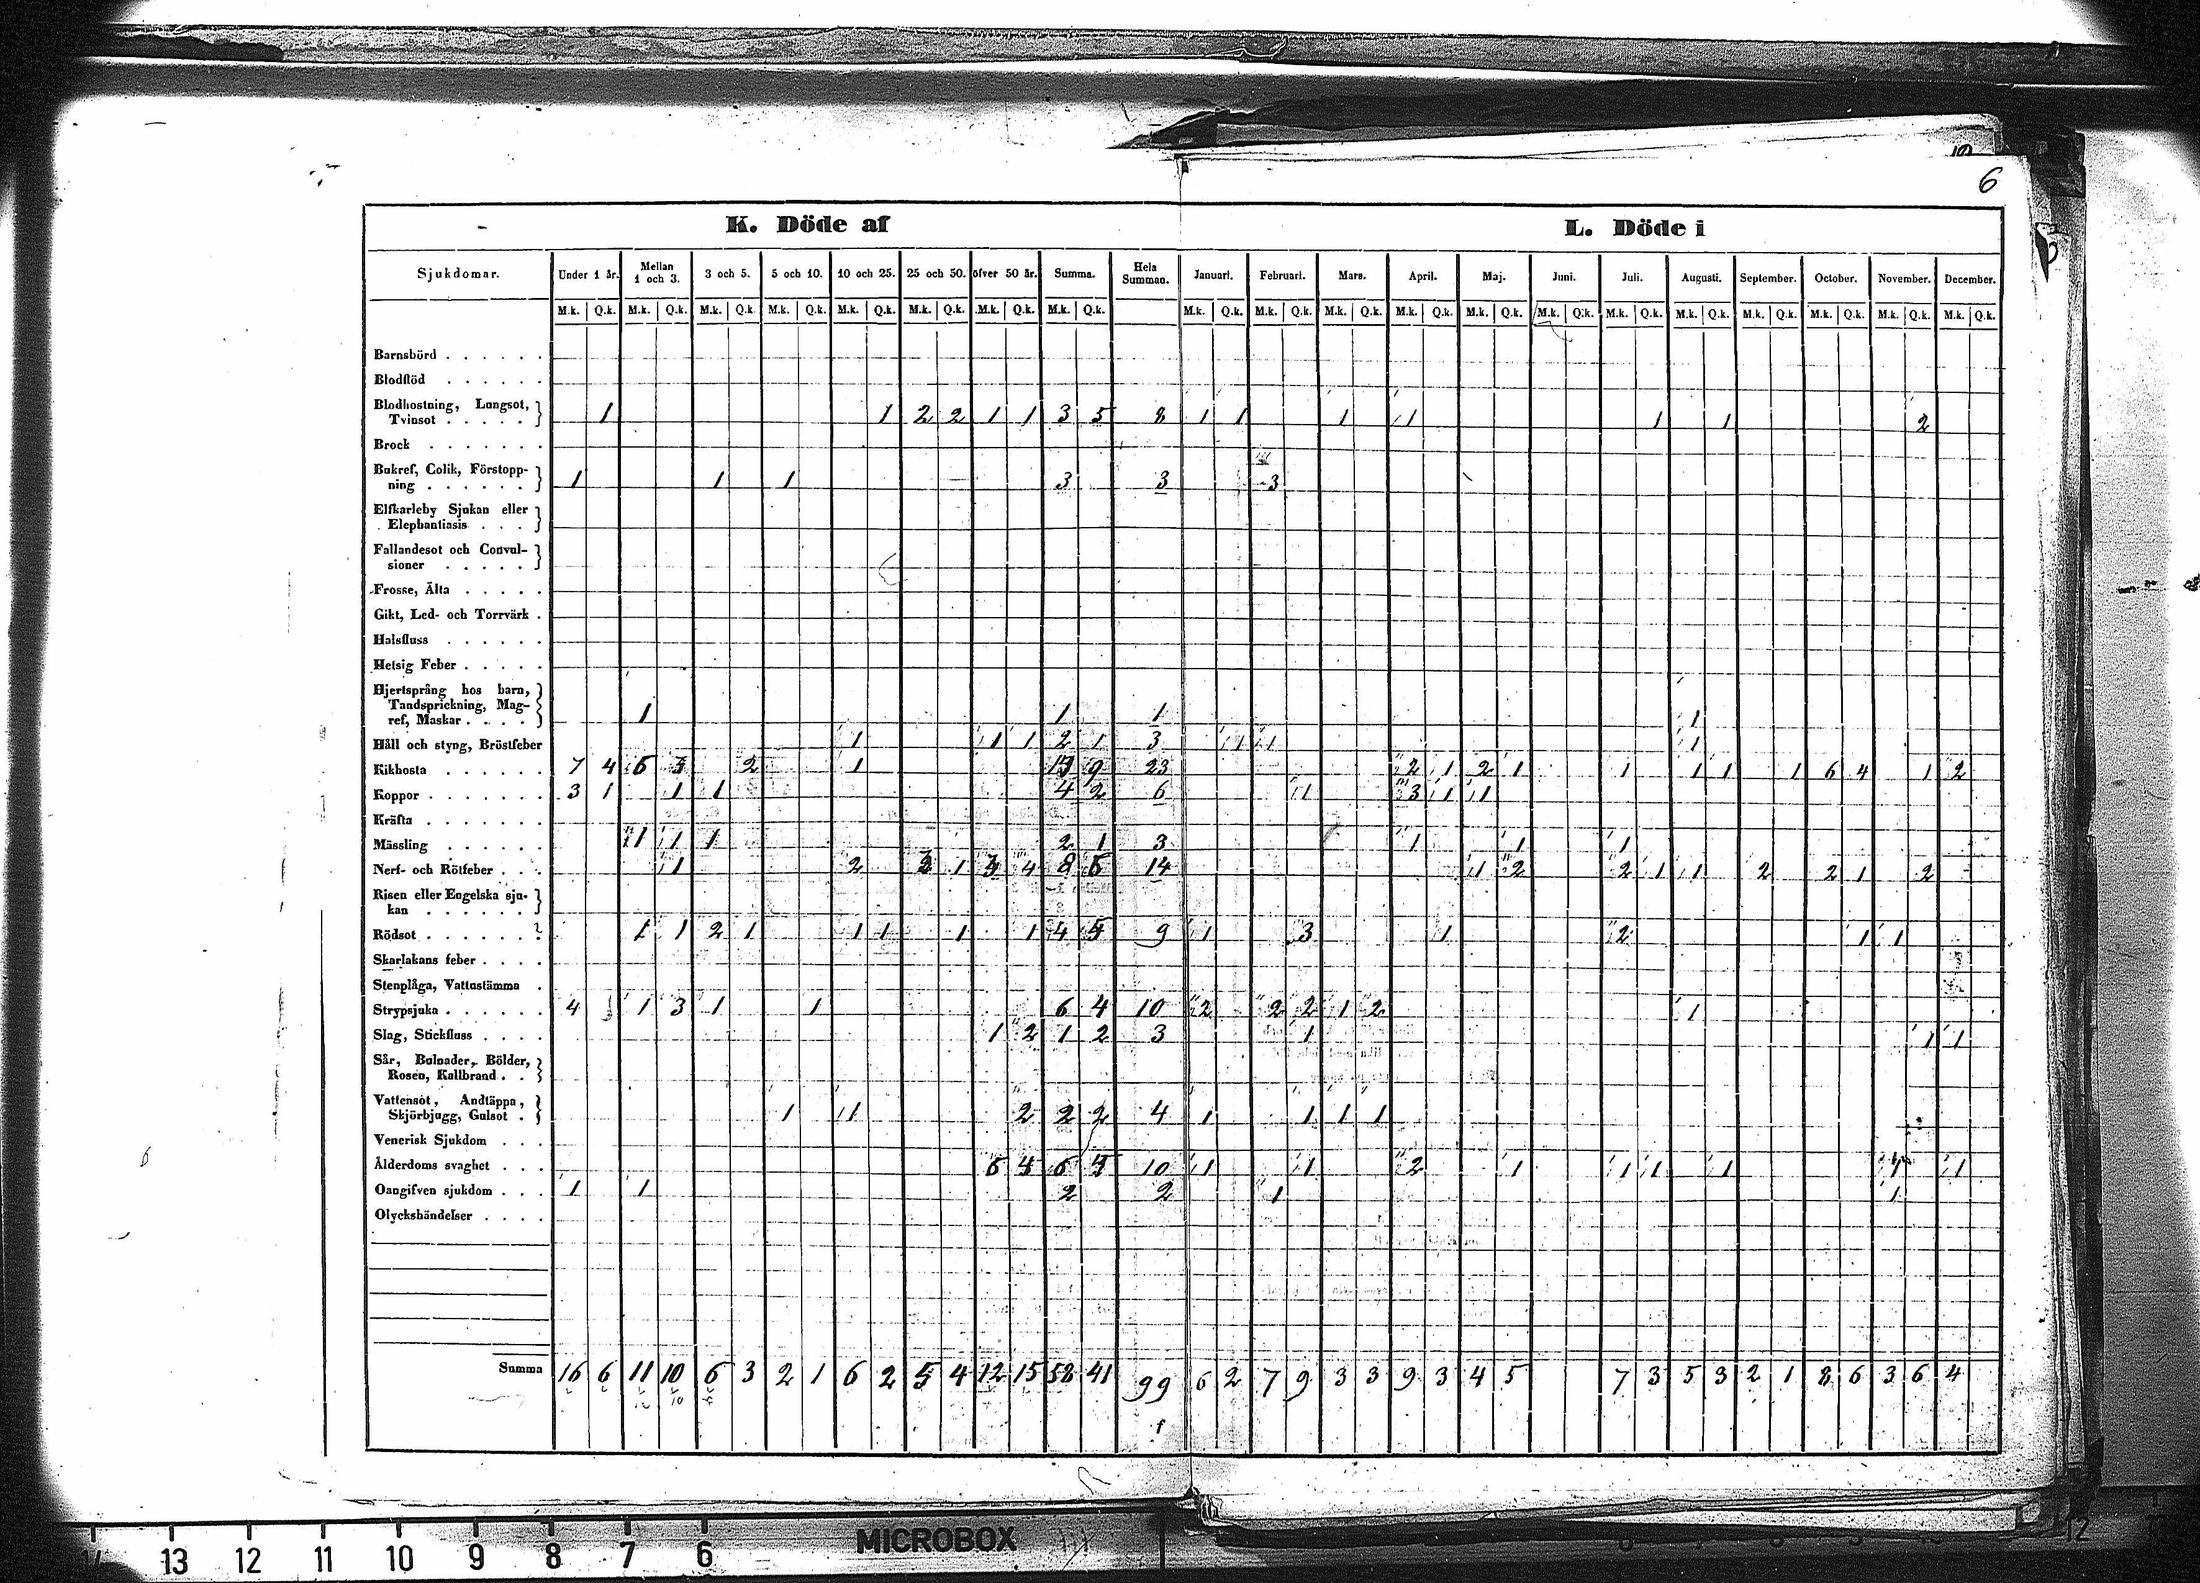 6
K. Döde af
L. Döde i
Sjukdomar. Under 1 år. Mellan 1 och 3. 3 och 5. 5 och 10. 10 och 25. 25 och 50. öfver 50 år. Summa. Hela Summan. Januari. Februari. Mars. April. Maj. Juni. Juli. Augusti. September. October. November. December.
M.k. Q.k. M.k. Q.k. M.k. Q.k. M.k. Q.k. M.k. Q.k. M.k. Q.k. M.k. Q.k. M.k. Q.k. M.k. Q.k. M.k. Q.k. M.k. Q.k. M.k. Q.k. M.k. Q.k. M.k. Q.k. M.k. Q.k. M.k. Q.k. M.k. Q.k. M.k. Q.k. M.k. Q.k. M.k. Q.k.
Barnsbörd . . . . . .
Blodflöd . . . . . .
Blodhostning, Lungsot,
Tvinsot . . . . . 1 1 2 2 1 1 3 5 8 1 1 1 1 1 1 2
Brock . . . . . .
Bukref, Colik, Förstopp-
ning . . . . . . 1 1 1 3 3 3
Elfkarleby Sjukan eller
Elephantiasis . . .
Fallandesot och Convul-
sioner . . . . .
Frosse, Älta . . . . .
Gikt, Led- och Torrvärk .
Halsfluss . . . . . .
Hetsig Feber . . . . .
Hjertsprång hos barn,
Tandsprickning, Mag-
ref, Maskar . . . . 1 1 1 1
Håll och styng, Bröstfeber 1 1 1 2 1 3 1 1 1
Kikhosta . . . . . . 7 4 2 1 9 23 2 1 2 1 1 1 1 1 6 4 1 2
Koppor . . . . . . . 3 1 1 1 4 2 6 1 3 1 1
Kräfta . . . . . . .
Mässling . . . . . . 1 1 1 2 1 3 1 1 1
Nerf- och Rötfeber . . . 1 2 1 4 14 1 2 2 1 1 2 2 1 2
Risen eller Engelska sju-
kan . . . . . .
Rödsot . . . . . . . 1 1 2 1 1 1 1 1 4 9 1 3 1 2 1 1
Skarlakans feber . . . .
Stenplåga, Vattustämma .
Strypsjuka . . . . . . 4 1 3 1 1 6 4 10 2 2 2 1 2 1
Slag, Stickfluss . . . . 1 2 1 2 3 1 1 1
Sår, Bulnader, Bölder,
Rosen, Kallbrand . .
Vattensot, Andtäppa,
Skjörbjugg, Gulsot . 1 1 2 2 2 4 1 1 1 1
Venerisk Sjukdom . . .
Ålderdoms svaghet . . . 6 10 1 1 2 1 1 1 1 1
Oangifven sjukdom . . . 1 1 2 2 1 1
Olyckshändelser . . . .
Summa 16 6 11 10 6 3 2 1 6 2 5 4 12 15 58 41 99 6 2 7 9 3 3 9 3 4 5 7 3 5 3 2 1 8 6 3 6 4
13 12 11 10 9 8 7 6 MICROBOX 12